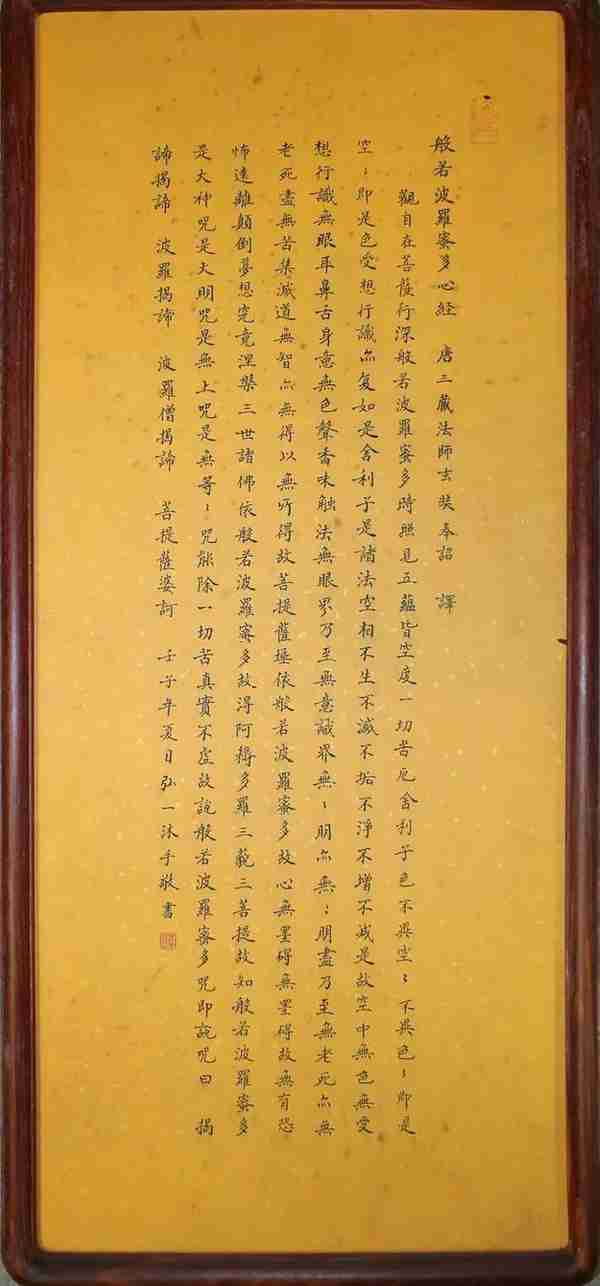 般若波羅蜜多心経 唐三藏法師玄奘奉詔 譯
觀自在菩薩行深般若波羅蜜多時照見五蘊皆空度一切苦厄舍利子色不異空〻不異色〻即是
空〻即是色受想行識亦复如是舍利子是諸法空相不生不滅不垢不淨不增不减是故空中無色無受
想行識無眼耳鼻舌身意無色聲香味触法無眼界乃至無意識界無〻明亦無〻明盡乃至無老死亦無
老死盡無苦集滅道無智亦無得以無所得故菩提薩埵依般若波羅蜜多故心無罣碍無罣碍故無有恐
怖遠離顛倒夢想究竟涅槃三世諸佛依般若波羅蜜多故得阿耨多羅三藐三菩提故知般若波羅蜜多
是大神咒是大明咒是無上咒是無等〻咒能除一切苦真實不虛故說般若波羅蜜多咒即說咒曰 揭
諦揭諦 波羅揭諦 波羅僧揭諦 菩提薩婆訶 壬子年夏日弘一沐手敬書